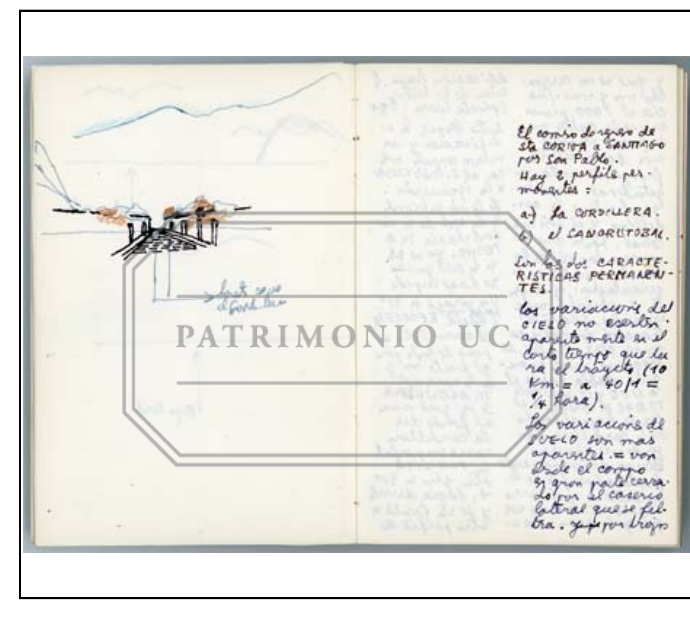 El camino de regreso de
sta CORINA a SANTIAGO
por San Pablo.
Hay 2 perfiles per-
manentes:
a) La CORDILLERA.
b) el SANCRISTOBAL.
Son las dos CARACTE-
RISTICAS PERMANEN-
TES.
las variaciones del
CIELO no existen
aparentemente en el
corto tiempo que du
ra el trayecto (10
Km = a 40/1 =
1/4 hora).
Las variaciones del
SUELO son mas
aparentes. = van
desde el campo
en gran parte cerra-
do por el caserio
lateral que se fil-
tra. por trozos
PATRIMONIO UC